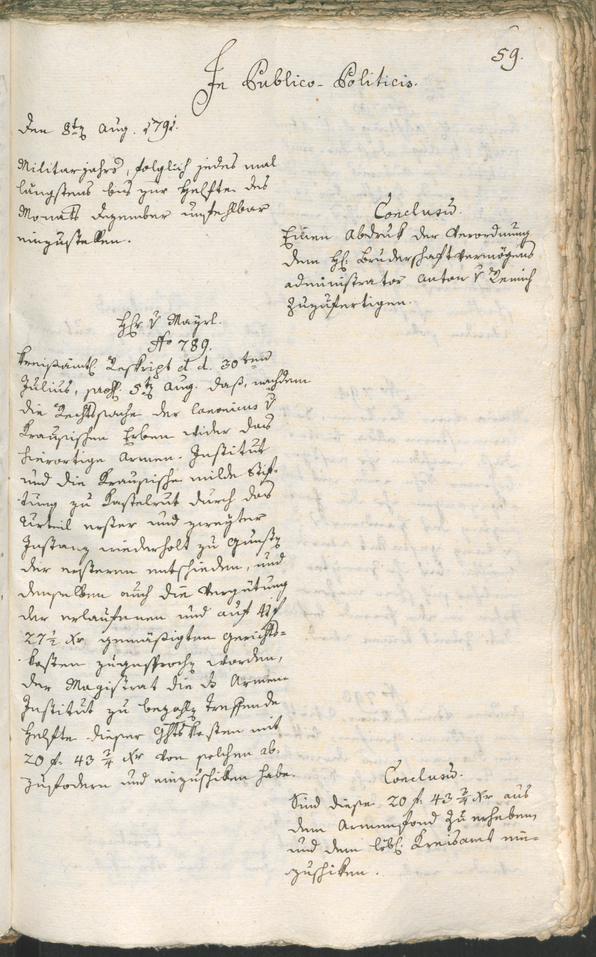 59.
In Publico-Politicis.
den 8ten Aug. 1791.
Militarjahrs, folglich jedes mal
längstens bis zur Helfte des
Monats Dezember unfehlbar
einzustellen.
Conclusum.
Einen Abdruk der Verordnung
dem H: Bruderschaftvermögens
administrator Anton v
zuzufertigen.
Hr v Mayrl.
No 789.
Kreisämtl Reskript d d. 30ten
Julius, praes. 5ten Aug. daß, nachdem
die Rechtssache der Canonicus v
Krausischen Erben wider das
hierortige Armen-Institut
und die Krausische milde Stif-
tung zu Kastelrut durch das
Urteil erster und zweyter
Instanz wiederholt zu Gunsten
der ersteren entschieden, und
denselben auch die Vergütung
der erlaufenen und auf 41 f
27½ Xr gemäßigten Gerichts-
kosten zugesprochen worden,
der Magistrat die das Armen
Institut zu bezahlen treffende
Helfte dieser Ghtskosten mit
20 f. 43¾ Xr von solchen ab-
zufodern und einzuschiken habe.
Conclusum.
Sind diese 20 f 43¾ Xr aus
dem Armenfond zu erheben
und dem löbl. Kreisamt ein-
zuschiken.